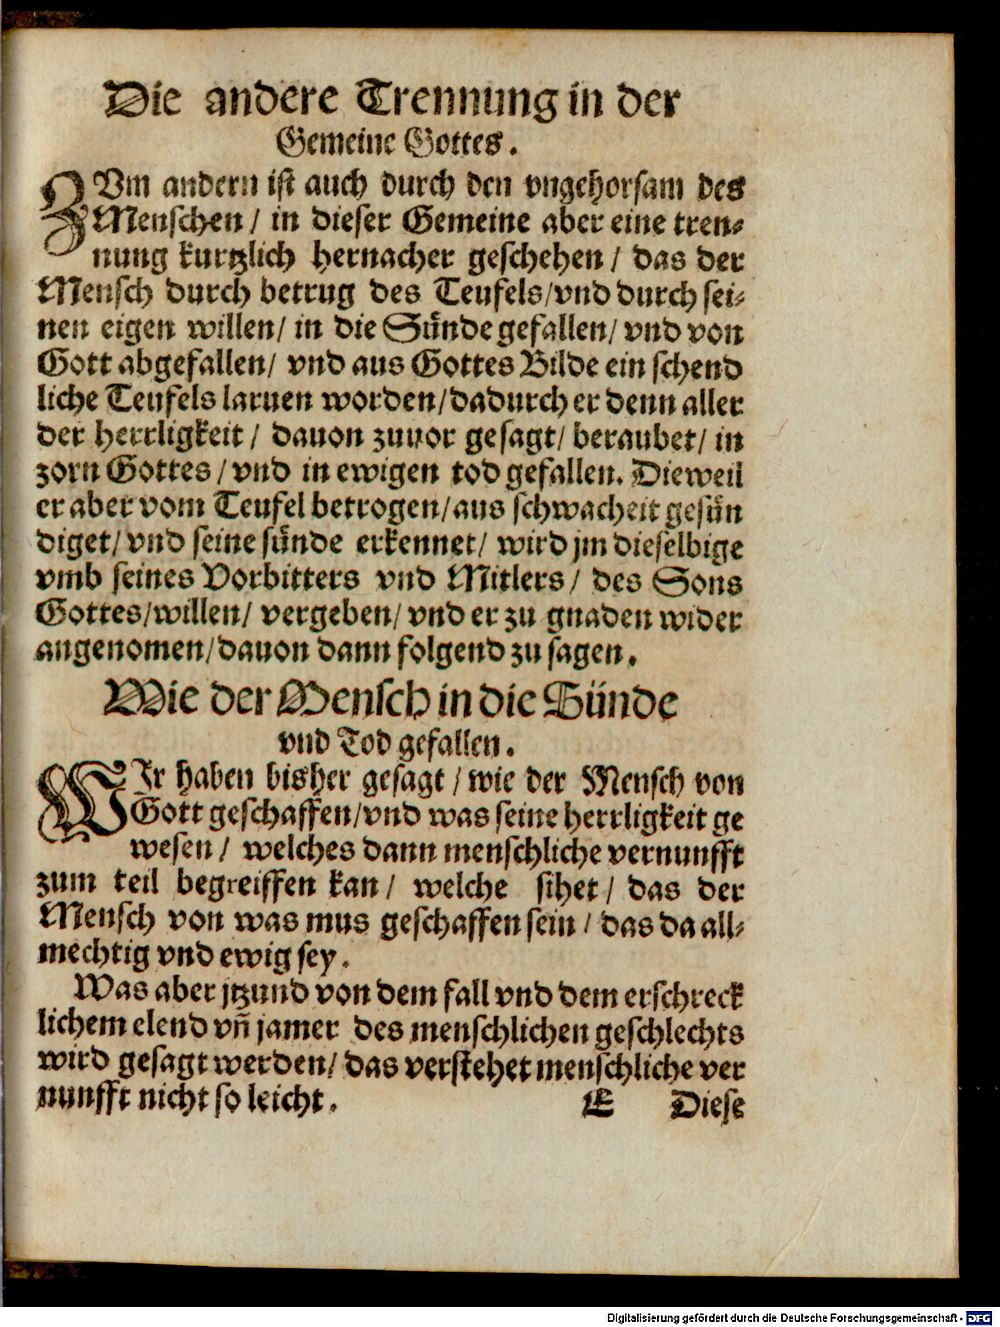 Die andere Trennung in der
Gemeine Gottes.
ZVm andern ist auch durch den vngehorsam des
Menschen / in dieser Gemeine aber eine tren⸗
nung kurtzlich hernacher geschehen / das der
Mensch durch betrug des Teufels/vnd durch sei⸗
nen eigen willen/ in die Sünde gefallen/ vnd von
Gott abgefallen/ vnd aus Gottes Bilde ein schend
liche Teufels laruen worden/dadurch er denn aller
der herrligkeit / dauon zuuor gesagt/ beraubet/ in
zorn Gottes /vnd in ewigen tod gefallen. Dieweil
er aber vom Teufel betrogen/aus schwacheit gesün
diget/ vnd seine sünde erkennet/ wird jm dieselbige
vmb seines Vorbitters vnd Mitlers / des Sons
Gottes/willen/ vergeben/ vnd er zu gnaden wider
angenomen/dauon dann folgend zu sagen.
Wie der Mensch in die Sünde
vnd Tod gefallen.
WIr haben bisher gesagt / wie der Mensch von
Gott geschaffen/vnd was seine herrligkeit ge
wesen / welches dann menschliche vernunfft
zum teil begreiffen kan / welche sihet / das der
Mensch von was mus geschaffen sein / das da all⸗
mechtig vnd ewig sey.
Was aber jtzund von dem fall vnd dem erschreck
lichem elend vñ jamer des menschlichen geschlechts
wird gesagt werden/ das verstehet menschliche ver
nunfft nicht so leicht.
E Diese
Digitalisierung gefördert durch die Deutsche Forschungsgemeinschaft - DFG